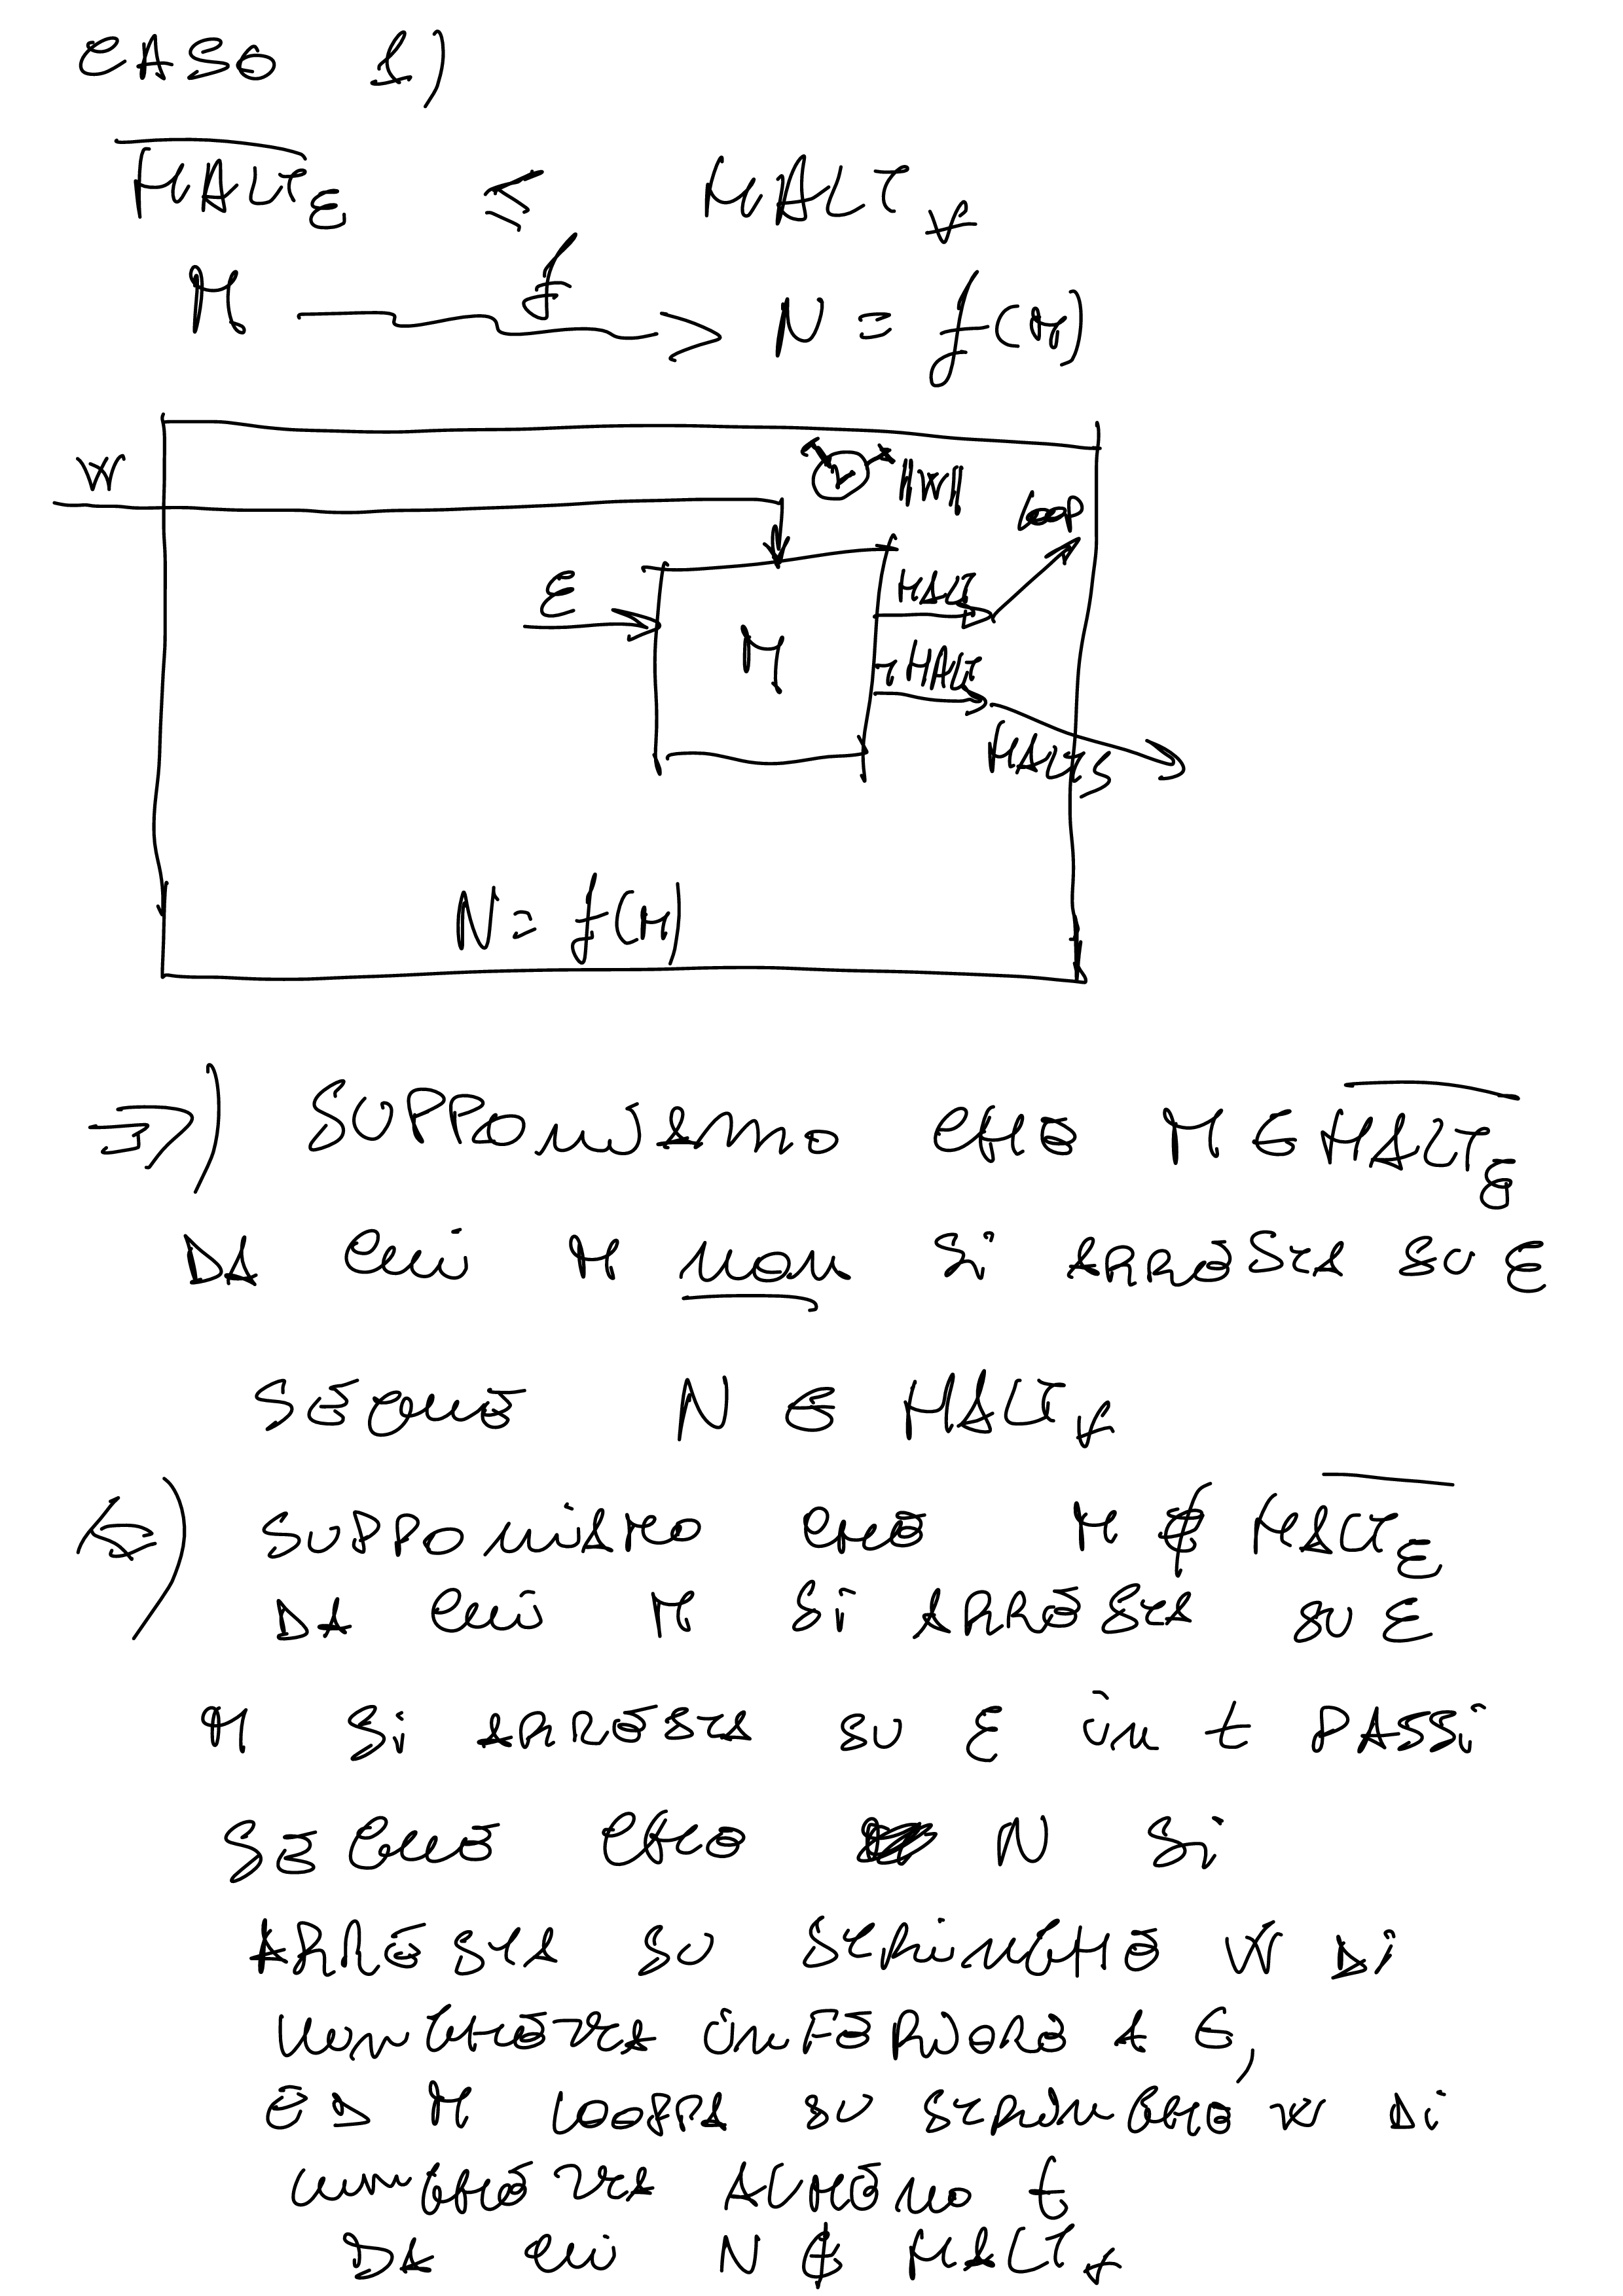 CASO 1)
$\overline{HALT_\varepsilon}$ ≤ $HALT_\forall$
M f N = f(M)
W
|W|
LOOP
ε
HALT
M
¬HALT
HALTS
N = f(M)
⇒) SUPPONIAMO CHE M ∈ $\overline{HALT_\varepsilon}$
DA CUI M NON SI ARRESTA SU ε
SEGUE N ∈ $HALT_\forall$
⇐) SUPPONIAMO CHE M ∉ $\overline{HALT_\varepsilon}$
DA CUI M SI ARRESTA SU ε
M SI ARRESTA SU ε IN t PASSI
SEGUE CHE N SI
ARRESTA SU STRINGHE W DI
LUNGHEZZA INFERIORE A t,
ED M LOOPPA SU STRINGHE W DI
LUNGHEZZA ALMENO t
DA CUI N ∉ $HALT_\forall$